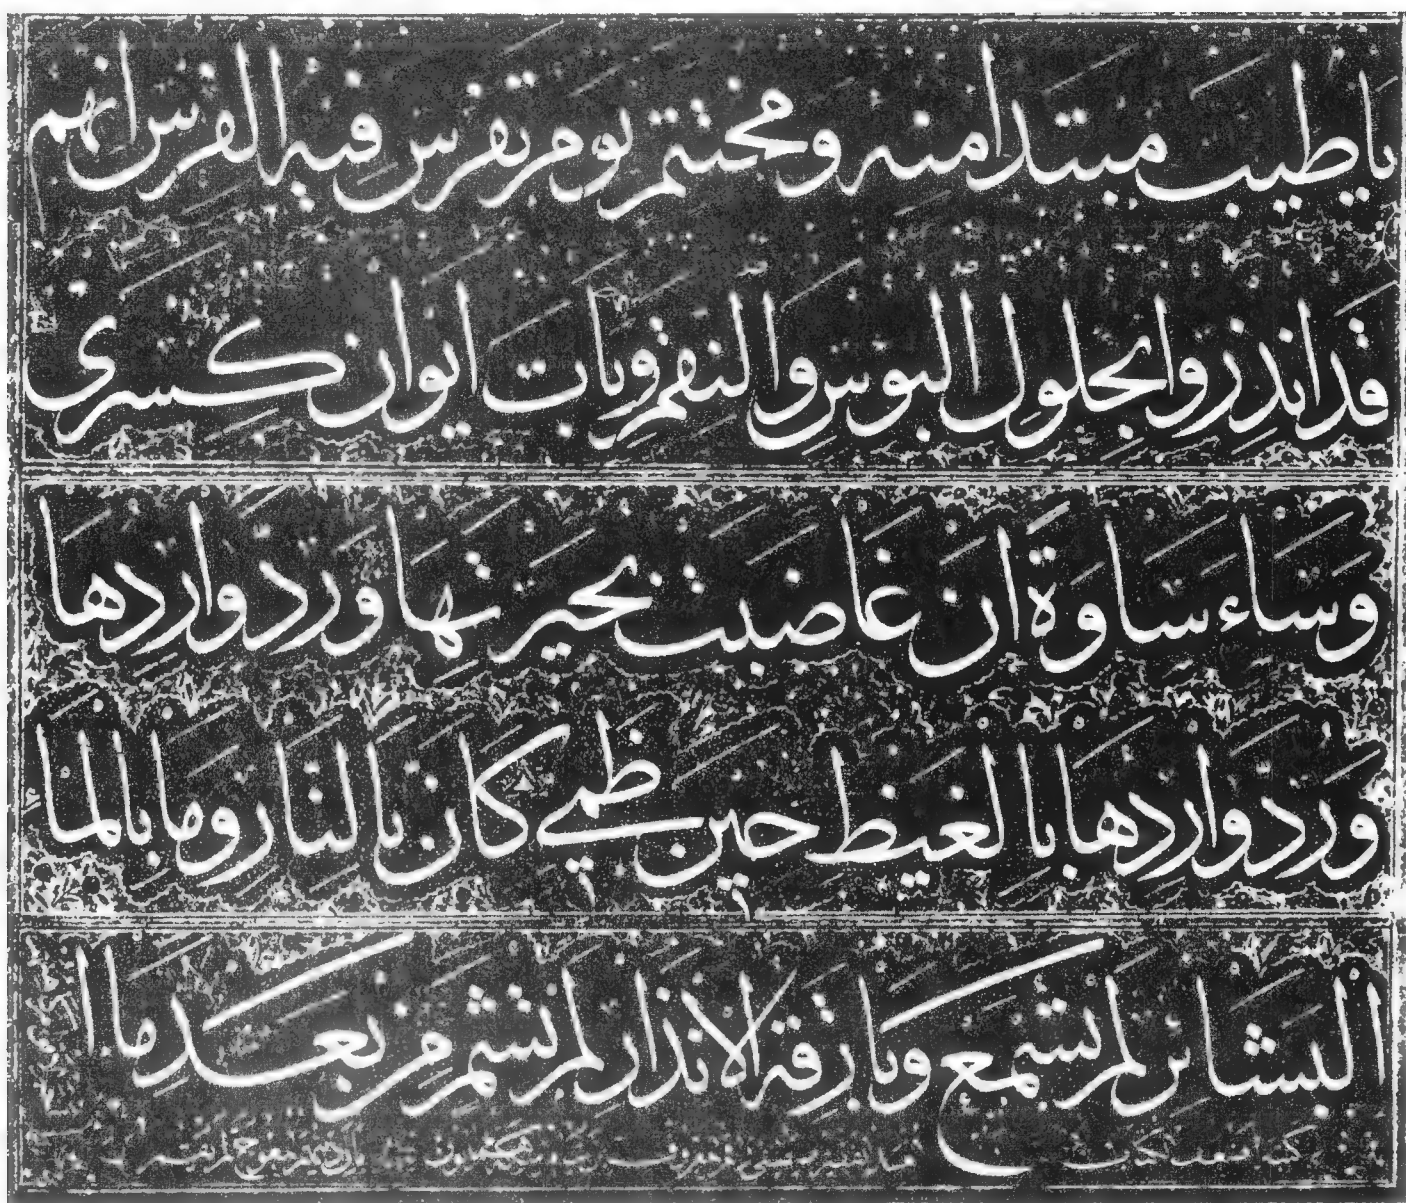 ياطيب مبتدا منه ومختتم يوم تفرس فيه الفرس انهم
قد انذروا بحلول البوس والنقم وبات ايوان كسرى
وساء ساوة ان غاضت بحيرتها ورد واردها
ورد واردها بالغيظ حين ظمي كان بالنار وما بالما
البشائر لم تسمع وبارقة الانذار لم تشم من بعد ما ا